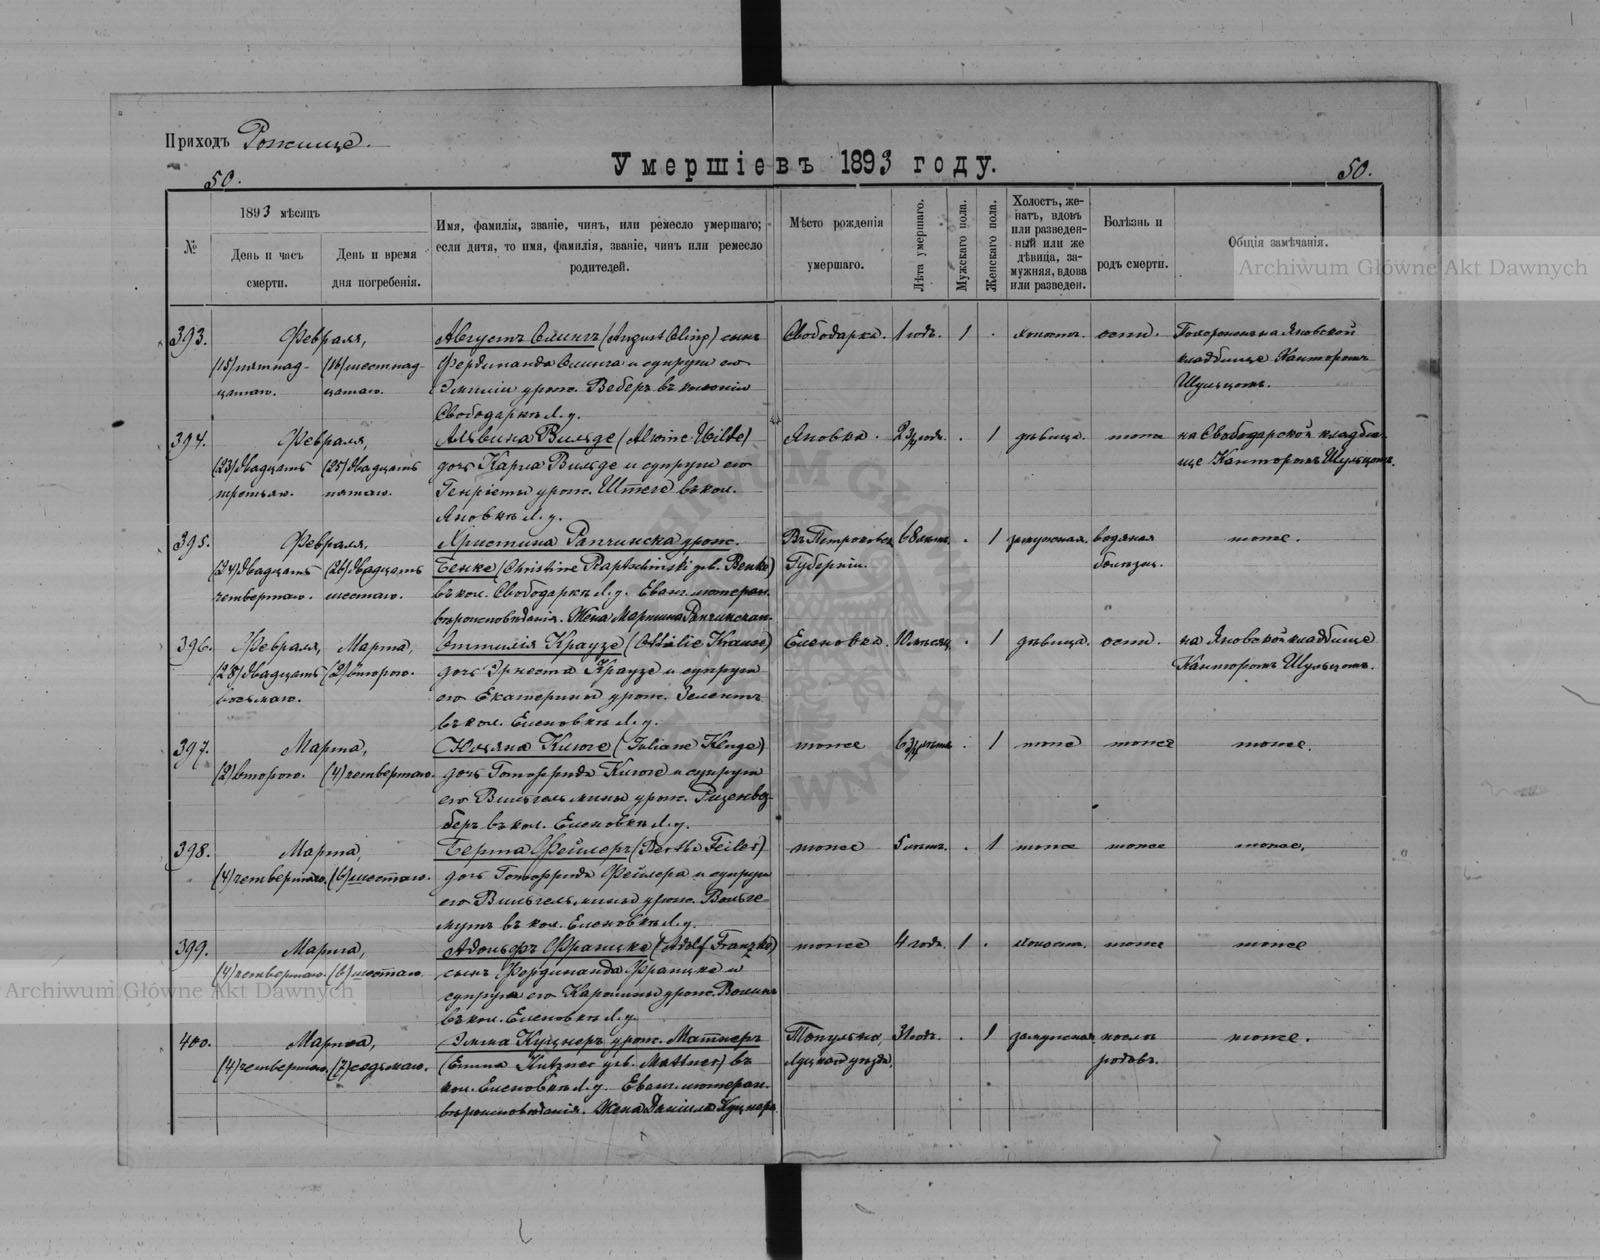 Приходъ Рожище.
Умершіе въ 1893 году.
50.
50.
№
1893 мѣсяцъ
День и часъ смерти.
День и время дня погребенія.
Имя, фамилія, званіе, чинъ, или ремесло умершаго;
если дитя, то имя, фамилія, званіе, чинъ или ремесло
родителей.
Мѣсто рожденія
умершаго.
Лѣта умершаго.
Мужскаго пола.
Женскаго пола.
Холостъ, же-
натъ, вдовъ
или разведен-
ный или же
дѣвица, за-
мужняя, вдова
или разведен.
Болѣзнь и
родъ смерти.
Общія замѣчанія.
Archiwum Główne Akt Dawnych
393. Февраля, Августъ Олингъ (August Oling) сынъ Свободарка. 1 годъ. 1 . холостъ. оспа. Похороненъ на Яновской
(15) пятнад- (16) шестнад- Фердинанда Олинга и супруги его кладбище Канторомъ
цатаго. цатаго. Эмиліи урож. Веберъ въ колоніи Шульцомъ.
Свободаркѣ Л. у.
394. Февраля, Альвина Вильде (Alwine Wilde) Яновка. 2 3/4 года. . 1 дѣвица. тоже на Свободарской кладби-
(23) двадцать (25) двадцать дочь Карла Вильде и супруги его ще Канторомъ Шульцомъ.
третьяго. пятаго. Генріеты урож. Штеге въ кол.
Яновкѣ Л. у.
395. Февраля, Христина Рапчинска урож. Въ Петроковск. 68 лѣтъ. . 1 замужняя. водяная тоже.
(24) двадцать (26) двадцать Бенке (Christine Raptschinski geb. Benke) Губерніи. болѣзнь.
четвертаго. шестаго. въ кол. Свободаркѣ Л. у. Еванг. лютеран.
вѣроисповѣданія. Жена Мартина Рапчинскаго.
396. Февраля, Марта, Оттилія Краузе (Ottilie Krause) Еленовка. 10 мѣсяц. . 1 дѣвица. оспа. на Яновской кладбище
(28) двадцать (2) втораго. дочь Эрнеста Краузе и супруги Канторомъ Шульцомъ.
восьмаго. его Екатерины урож. Зелентъ
въ кол. Еленовкѣ Л. у.
397. Марта, Юліяна Клюге (Juliane Kluge) тоже 6 3/4 лѣтъ . 1 тоже тоже тоже.
(2) втораго. (4) четвертаго. дочь Готфрида Клюге и супруги
его Вильгельмины урож.
въ кол. Еленовкѣ Л. у.
398. Марта, Берта Фейлеръ (Bertha Feiler) тоже 5 лѣтъ. . 1 тоже тоже тоже.
(4) четвертаго. (6) шестаго. дочь Готфрида Фейлера и супруги
его Вильгельмины урож. Вольге-
мутъ въ кол. Еленовкѣ Л. у.
399. Марта, Адольфъ Францке (Adolf Franzke) тоже 4 года. 1 . холостъ. тоже тоже
(4) четвертаго. (6) шестаго. сынъ Фердинанда Францке и
супруги его Каролины урож.
въ кол. Еленовкѣ Л. у.
Archiwum Główne Akt Dawnych
400. Марта, Эмма Куцнеръ урож. Матнеръ Топульно, 31 годъ. . 1 замужняя. послѣ тоже.
(4) четвертаго. (7) седьмаго. (Emma Kutzner geb. Mattner) въ Луцкаго уѣзда. родовъ.
кол. Еленовкѣ Л. у. Еванг. лютеран.
вѣроисповѣданія. Жена Даніила Куцнера